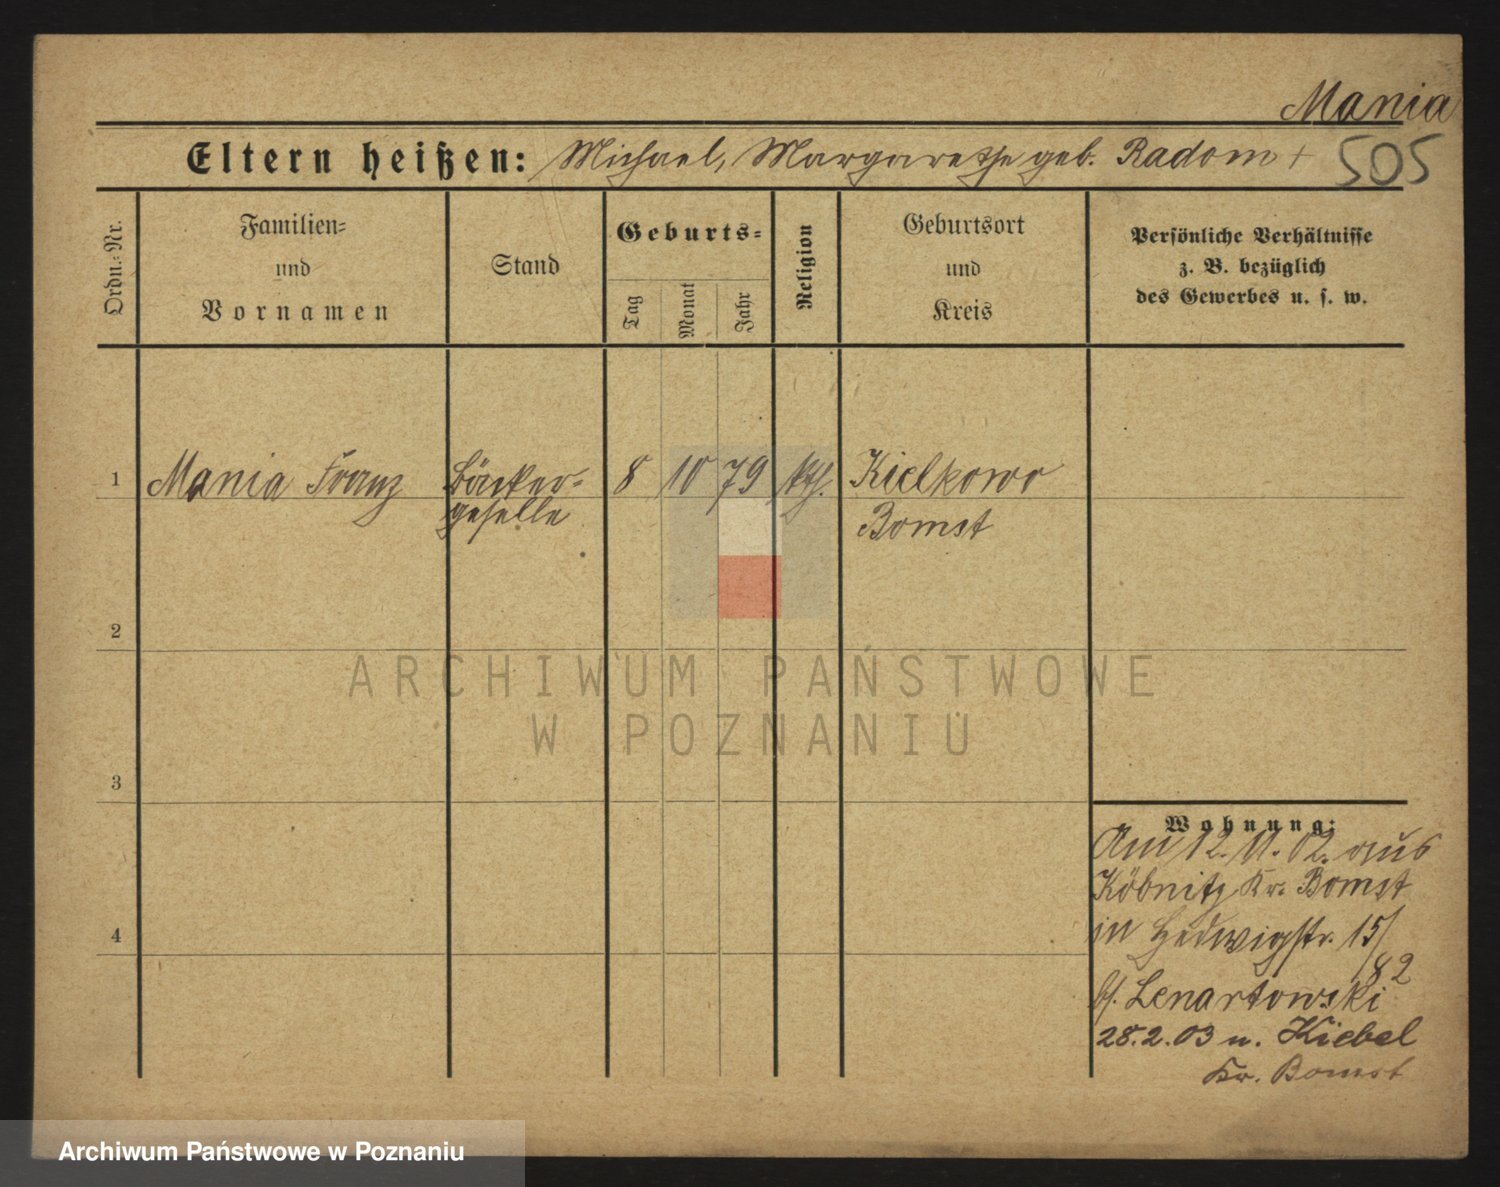 Mania
Eltern heißen: Michael, Margarethe geb. Radom +
505
Ordn.-Nr.
Familien-
und
Vornamen
Stand
Geburts-
Tag
Monat
Jahr
Religion
Geburtsort
und
Kreis
Persönliche Verhältnisse
z. B. bezüglich
des Gewerbes u. s. w.
1 Mania Franz Bäcker- 8 10 79 kth. Kielkowo
geselle Bomst
2
3
4
Wohnung:
Am 12. 11. 02. aus
Köbnitz Kr. Bomst
in Hedwigstr. 15/
82
bs. Lenartowski
28.2.03 n. Kiebel
Kr. Bomst
ARCHIWUM PAŃSTWOWE
W POZNANIU
Archiwum Państwowe w Poznaniu